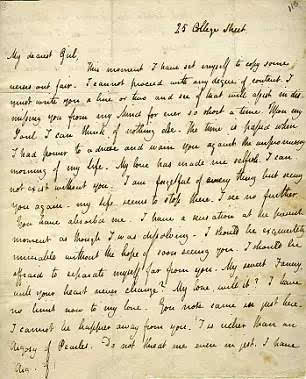 25 College Street
My dearest Girl,
This moment I have set myself to copy some
verses out fair. I cannot proceed with any degree of content. I
must write you a line or two and see if that will assist in dis
missing you from my Mind for ever so short a time. Upon my
Soul I can think of nothing else. The time is passed when
I had power to advise and warn you against the unpromising
morning of my Life. My love has made me selfish. I can
not exist without you. I am forgetful of every thing but seeing
you again. my Life seems to stop there. I see no further.
You have absorb'd me. I have a sensation at the present
moment as though I was dissolving. I should be exquisitely
miserable without the hope of soon seeing you. I should be
afraid to separate myself far from you. My sweet Fanny
will your heart never change? My love will it? I have
no limit now to my love. You note came in just here.
I cannot be happier away from you. 'T is richer than an
Argosy of Pearles. Do not threat me even in jest. I have